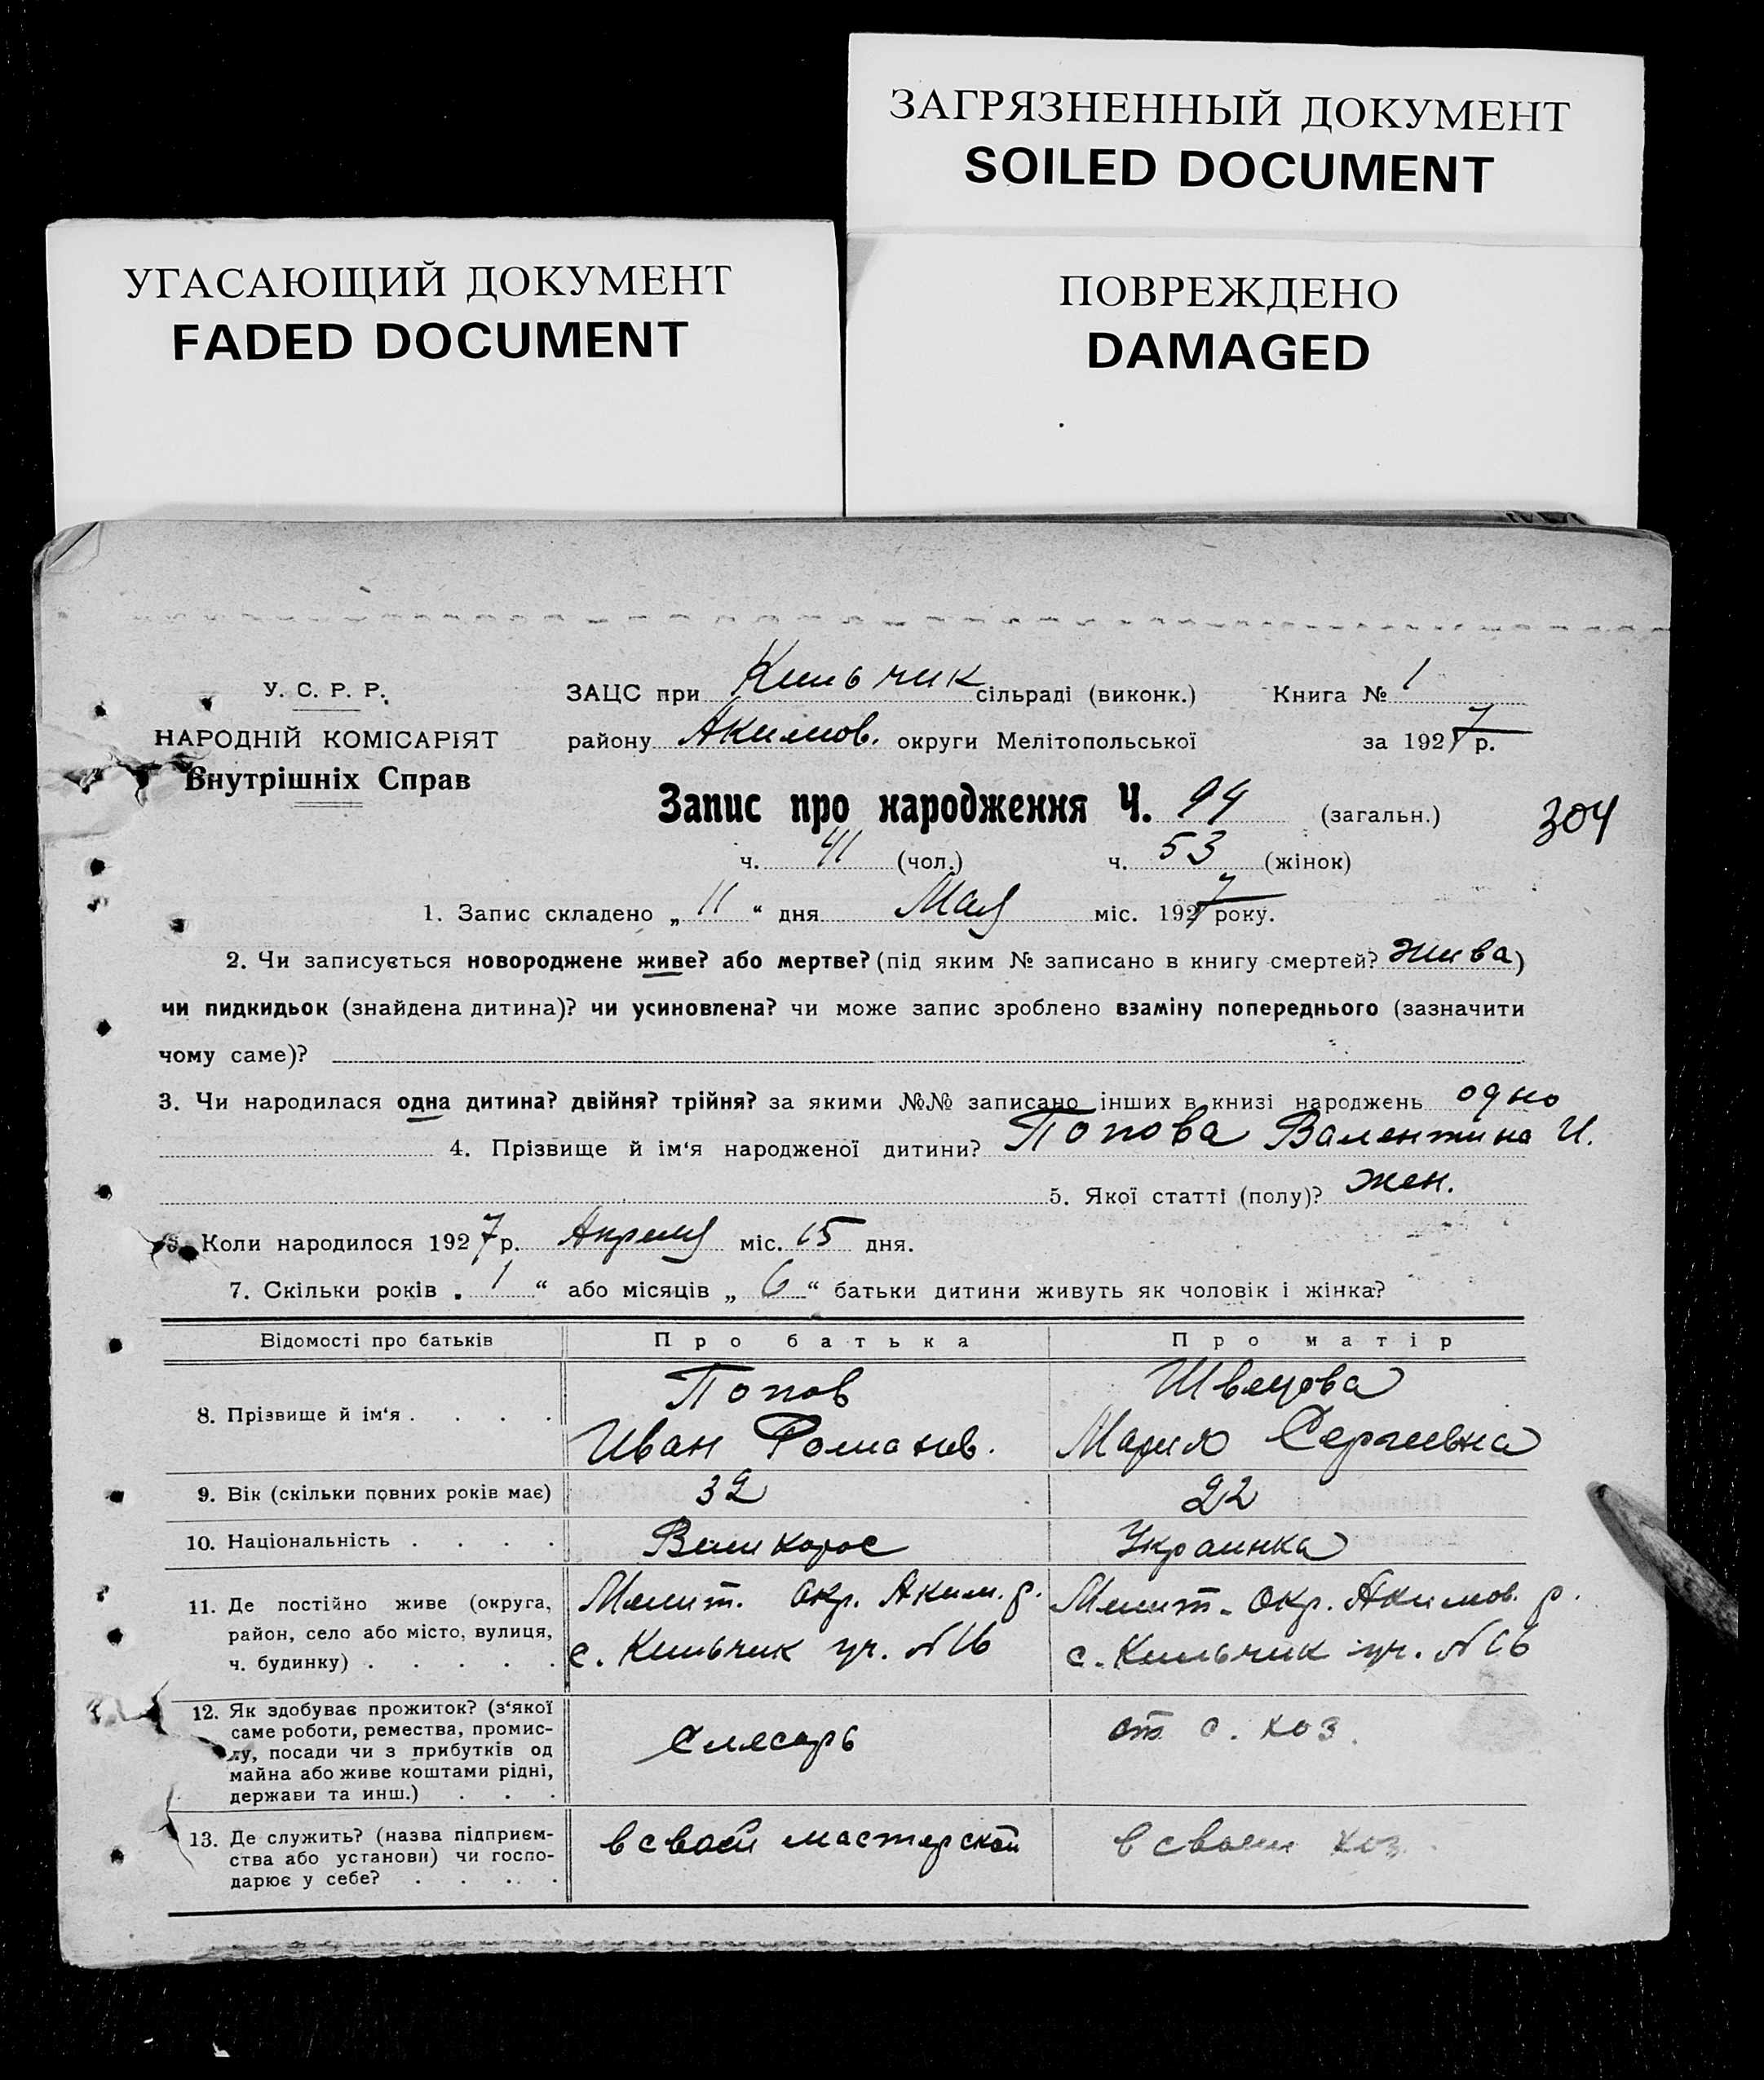 ЗАГРЯЗНЕННЫЙ ДОКУМЕНТ
SOILED DOCUMENT
УГАСАЮЩИЙ ДОКУМЕНТ
FADED DOCUMENT
ПОВРЕЖДЕНО
DAMAGED
У. С. Р. Р.
НАРОДНІЙ КОМІСАРІЯТ
Внутрішніх Справ
ЗАЦС при Кильчик сільраді (виконк.) Книга № 1
району Акимов. округи Мелітопольської за 1927 р.
Запис про народження Ч. 94 (загальн.)
304
ч. 41 (чол.) ч. 53 (жінок)
1. Запис складено „ 11 “ дня Мая міс. 1927 року.
2. Чи записується новороджене живе? або мертве? (під яким № записано в книгу смертей? жива)
чи пидкидьок (знайдена дитина)? чи усиновлена? чи може запис зроблено взаміну попереднього (зазначити
чому саме)?
3. Чи народилася одна дитина? двійня? трійня? за якими №№ записано інших в книзі народжень одно
4. Прізвище й ім‘я народженої дитини? Попова Валентина И.
5. Якої статті (полу)? жен.
6. Коли народилося 1927 р. Апреля міс. 15 дня.
7. Скільки років „ 1 “ або місяців „ 6 “ батьки дитини живуть як чоловік і жінка?
Відомості про батьків Про батька Про матір
8. Прізвище й ім‘я . . . . Попов Швецова
Иван Романов. Мария Сергеевна
9. Вік (скільки повних років має) 32 22
10. Національність . . . . Великорос Украинка
11. Де постійно живе (округа, Мелит. окр. Аким. р. Мелит. окр. Акимов. р.
район, село або місто, вулиця, с. Кильчик уч. №16 с. Кильчик уч. №16
ч. будинку) . . . . .
12. Як здобуває прожиток? (з‘якої
саме роботи, ремества, промис-
лу, посади чи з прибутків од Слесарь от с. хоз.
майна або живе коштами рідні,
держави та инш.) . . .
13. Де служить? (назва підприєм- в своей мастерской в своем хоз.
ства або установи) чи госпо-
дарює у себе? . . . .